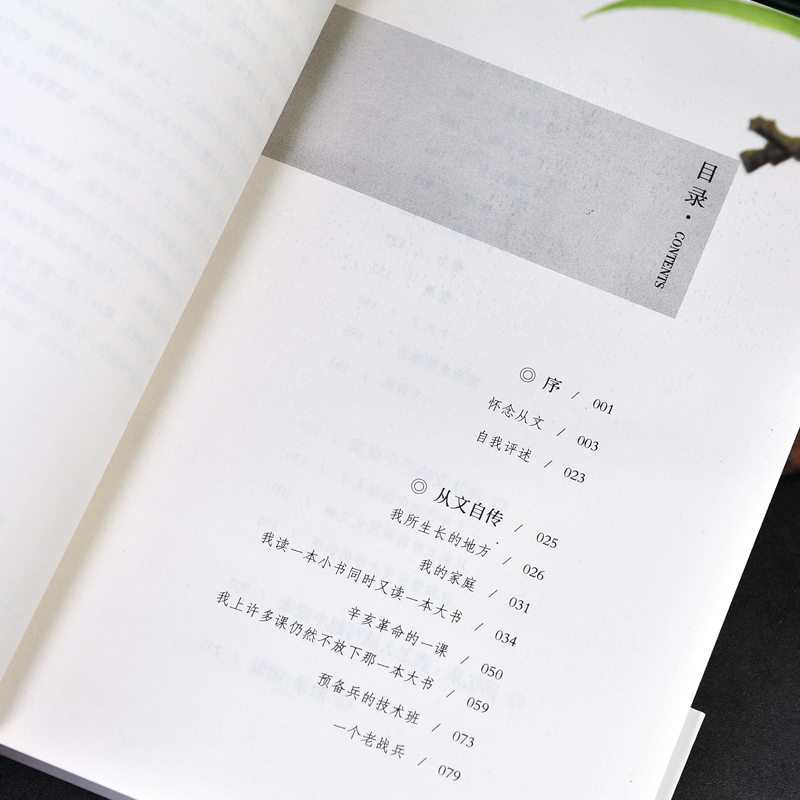 目录·CONTENTS
◎ 序 / 001
怀念从文 / 003
自我评述 / 023
◎ 从文自传 / 025
我所生长的地方 / 026
我的家庭 / 031
我读一本小书同时又读一本大书 / 034
辛亥革命的一课 / 050
我上许多课仍然不放下那一本大书 / 059
预备兵的技术班 / 073
一个老战兵 / 079